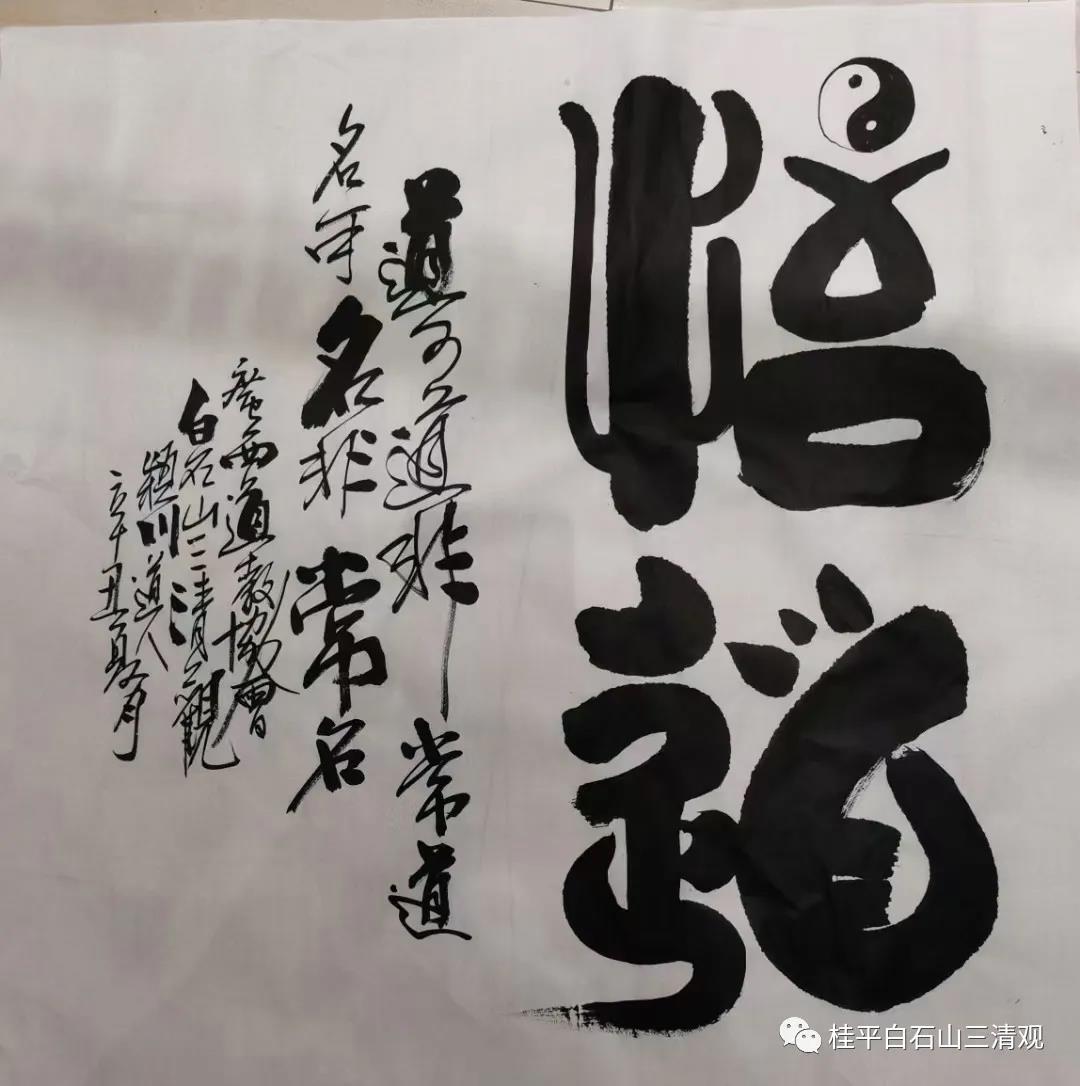 悟道
道可道非常道
名可名非常名
廣西道教協會
白石山三清觀
穎川道人
辛丑夏月
桂平白石山三清观